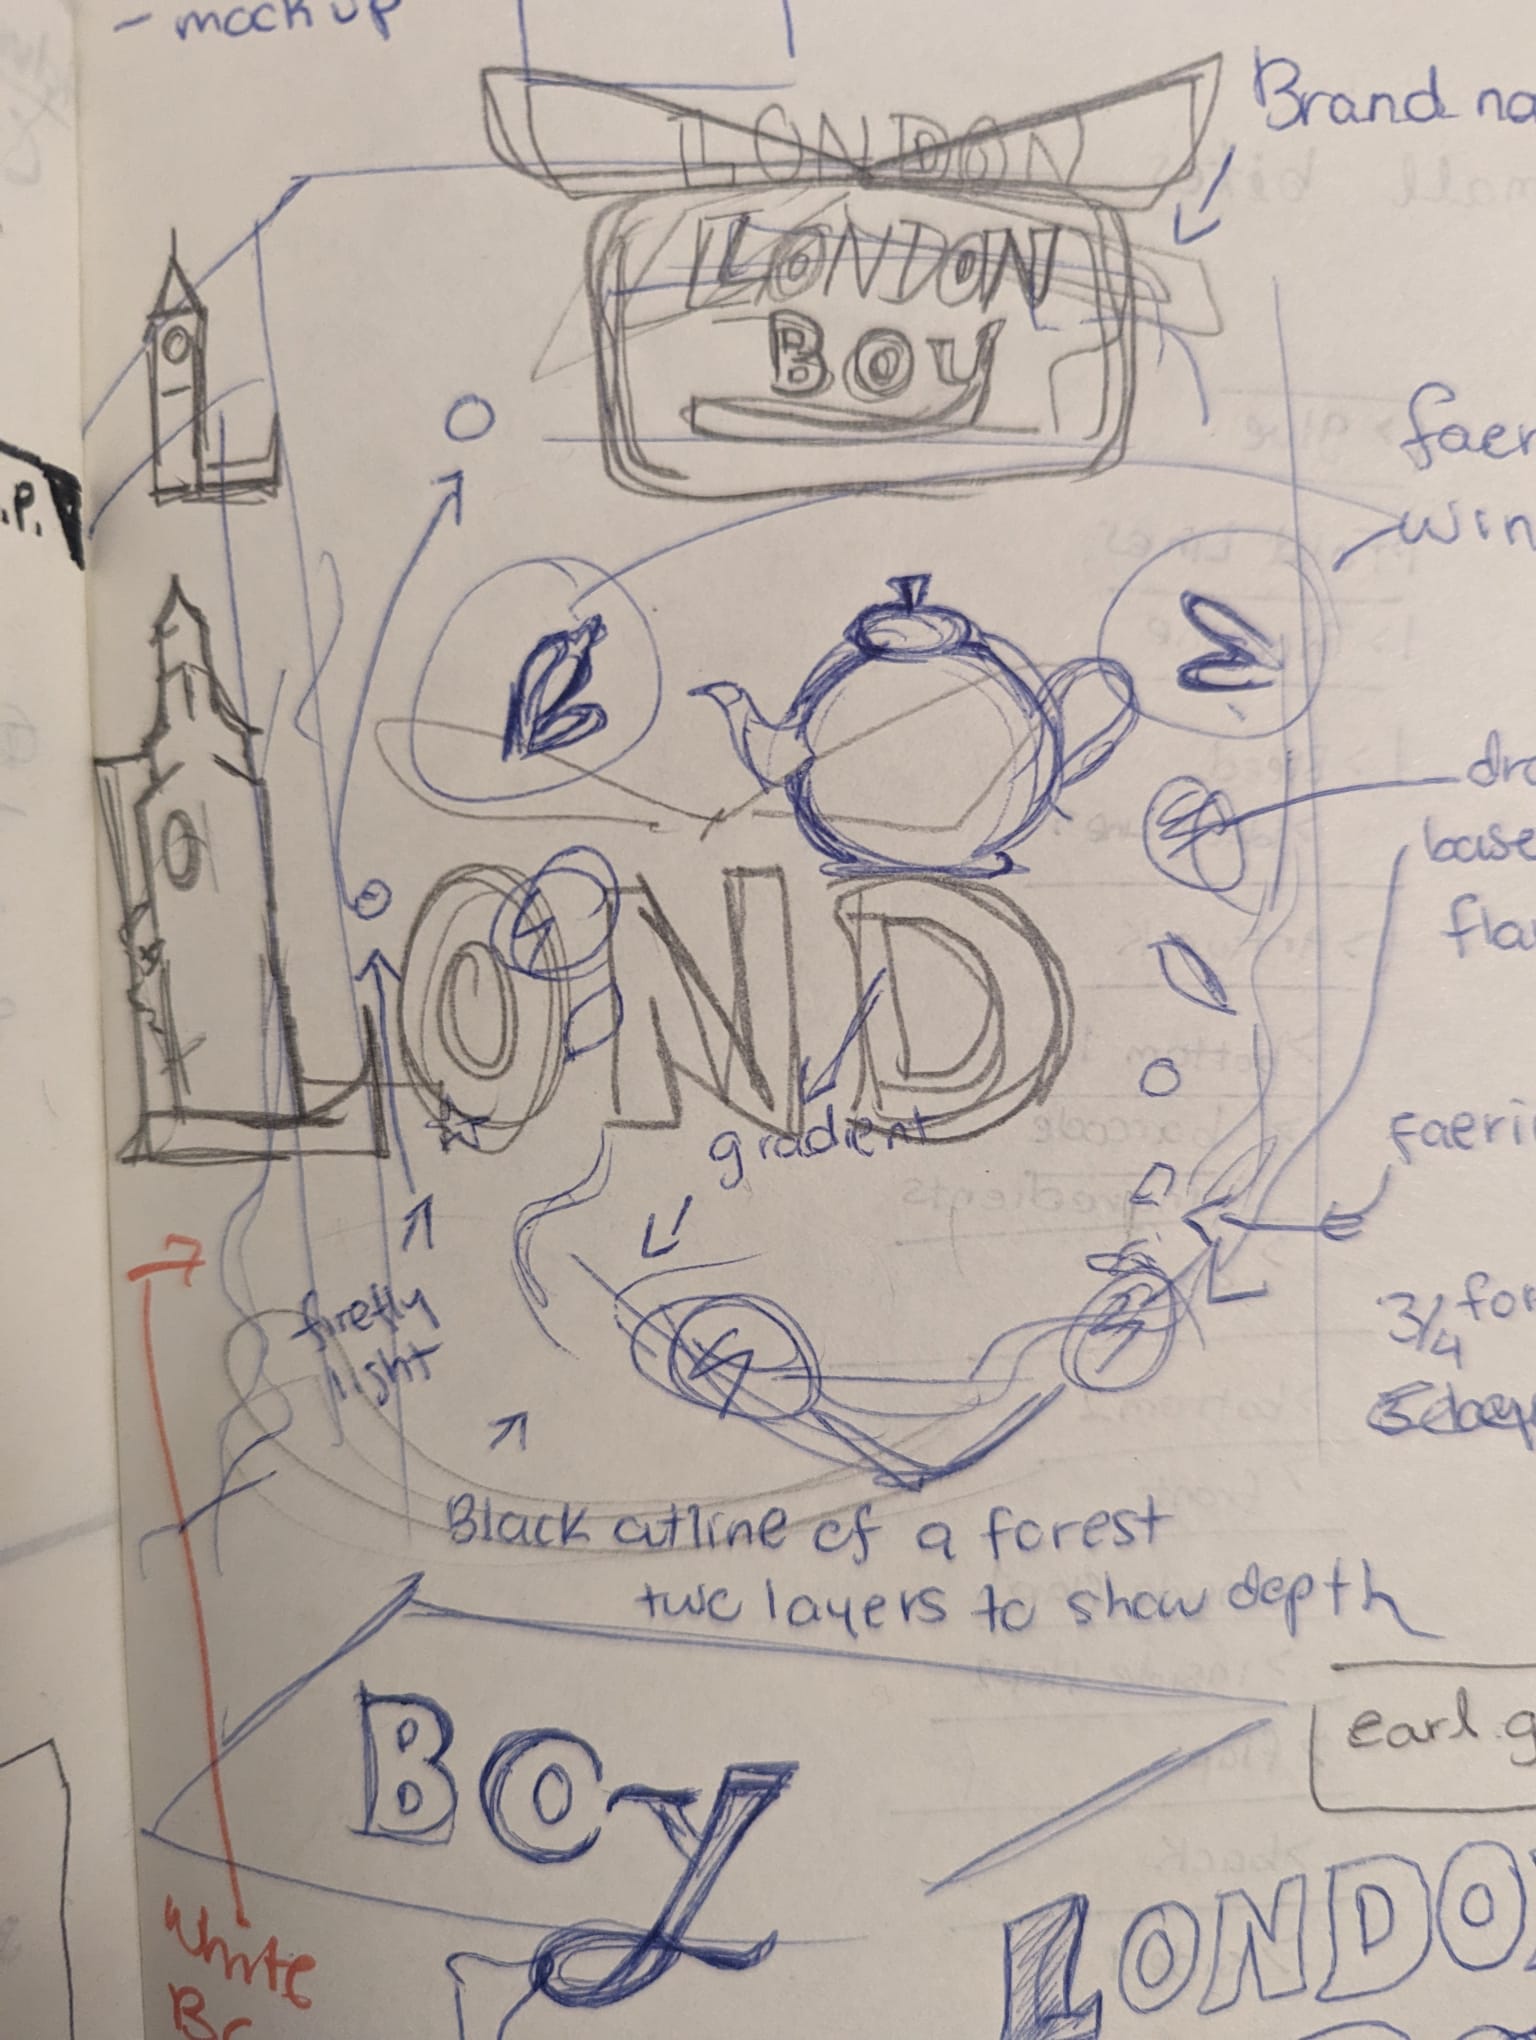 - mock up
Brand na
LONDON
LONDON
BOY
.P.
faer
win
dra
base
flav
LOND
gradient
faeri
firefly
light
3/4 for
Black outline of a forest
two layers to show depth
earl g
BOY
LONDO
White